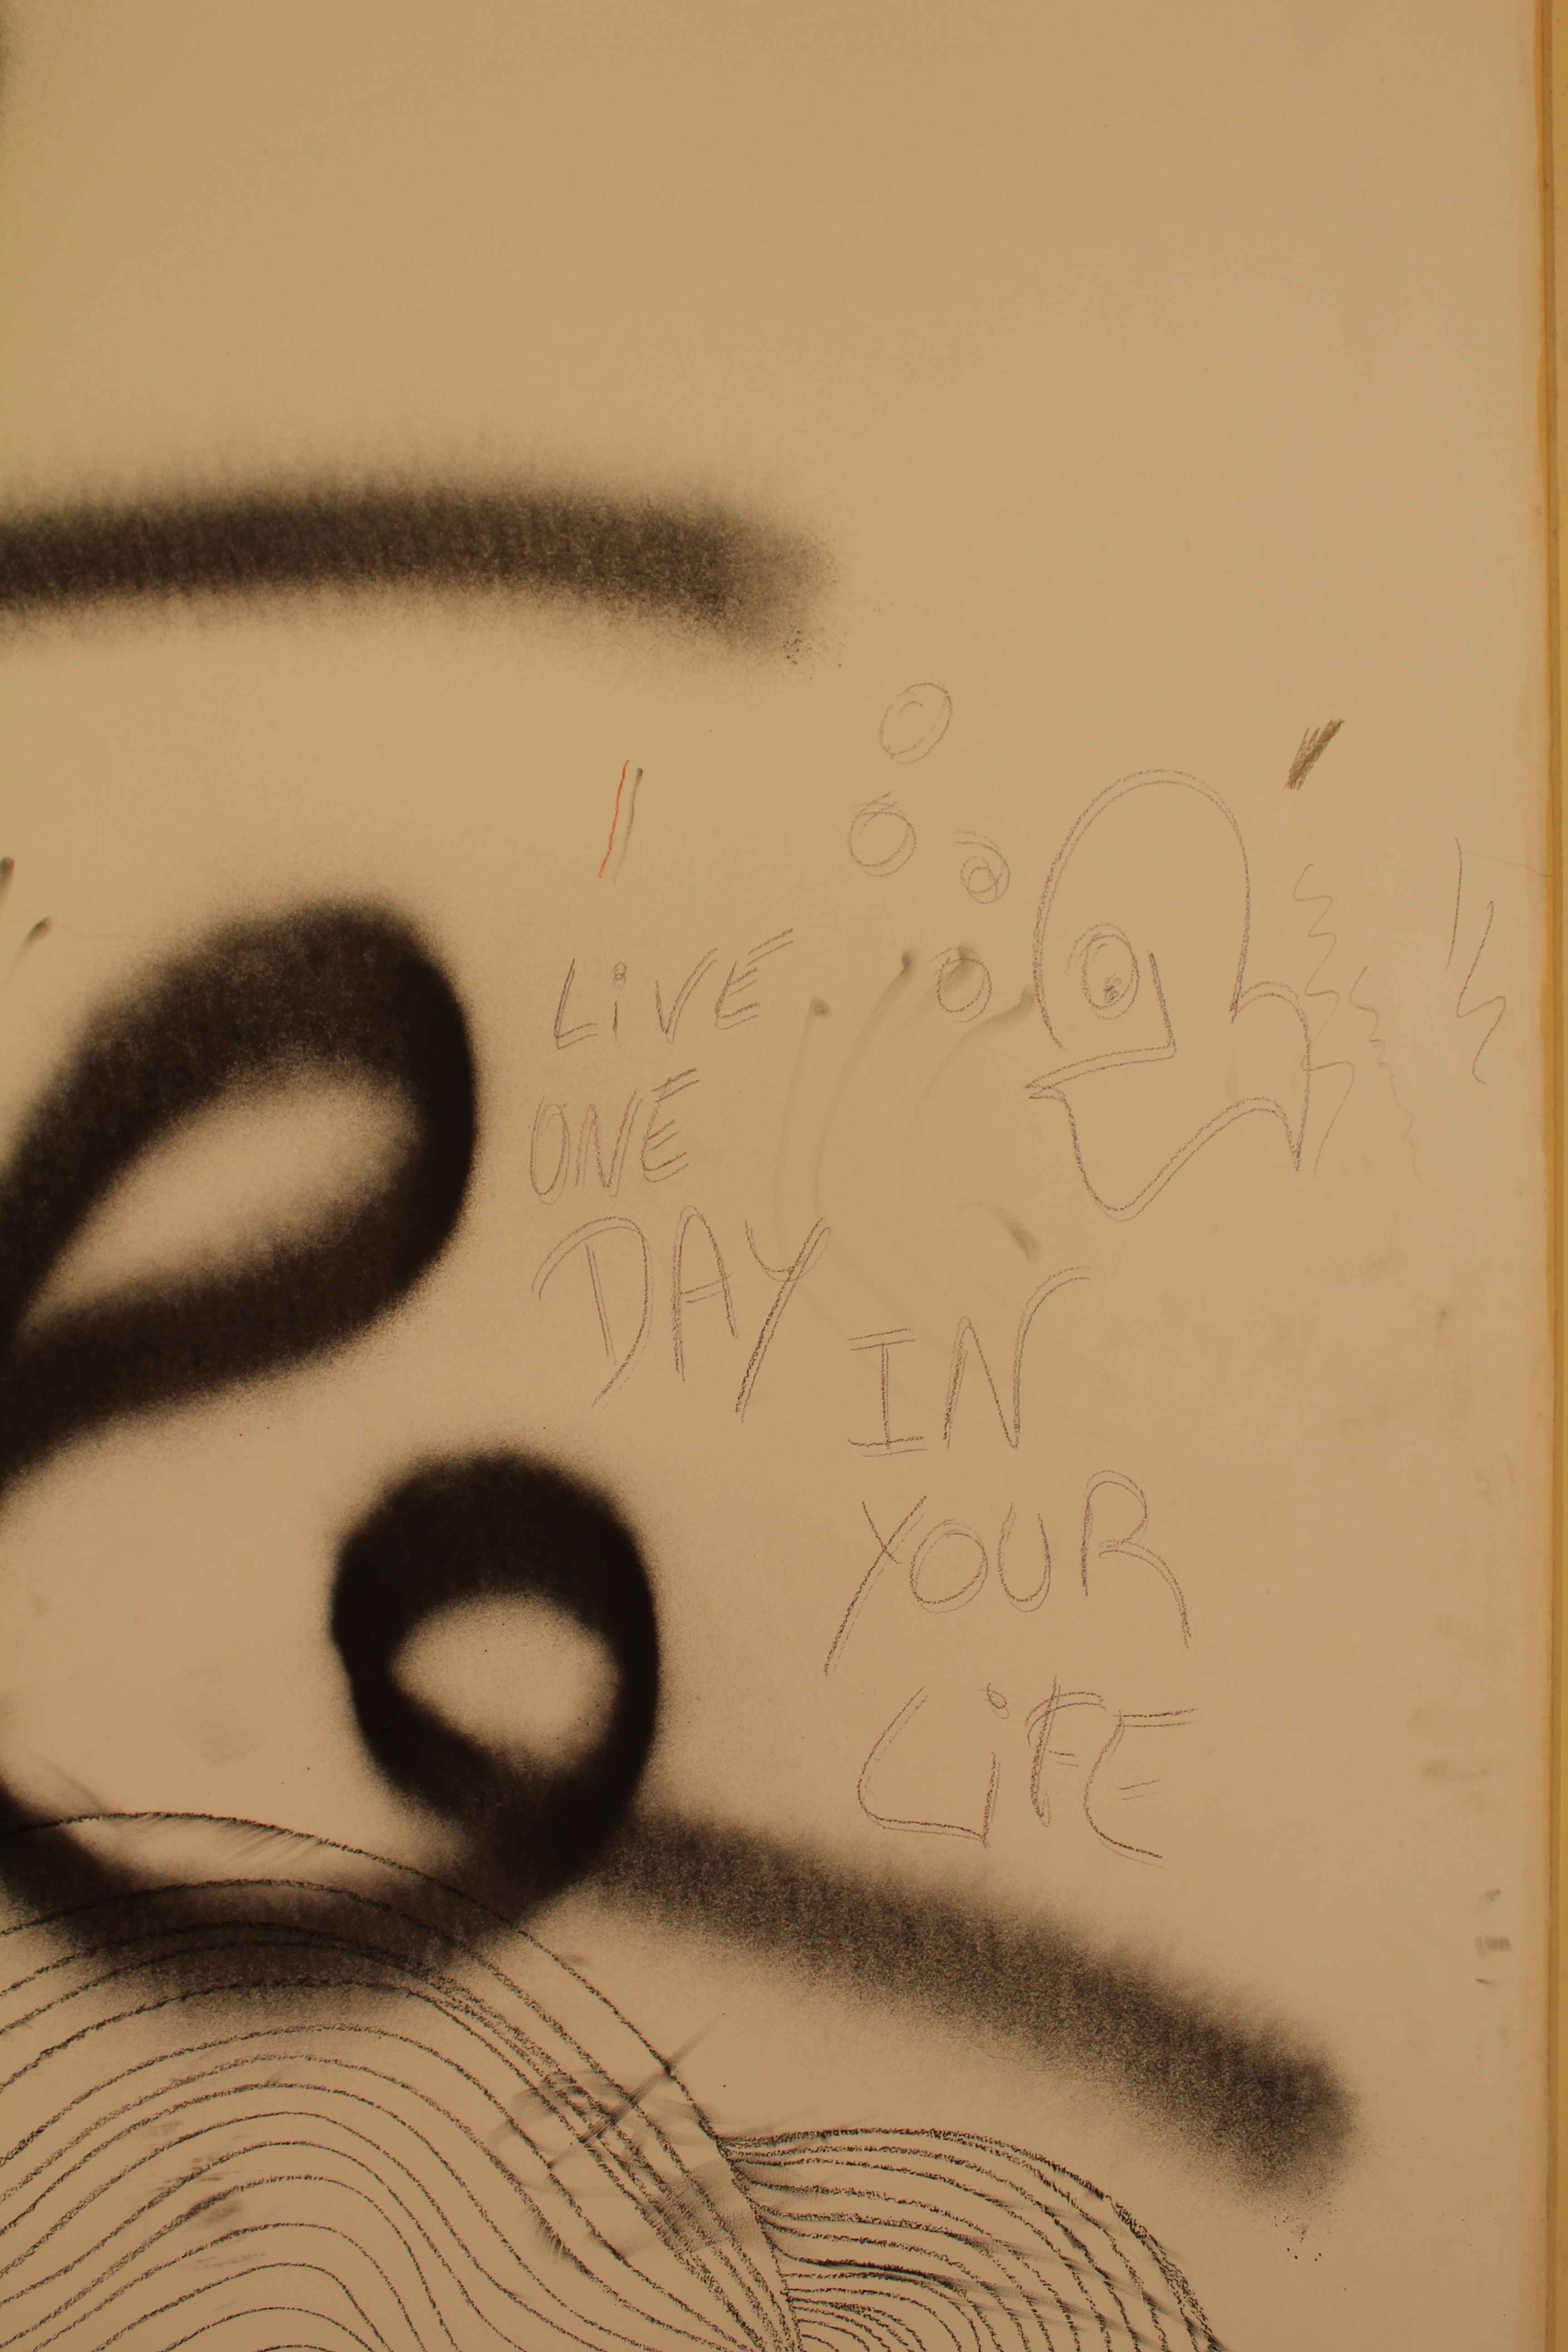 LiVE
ONE
DAY
IN
YOUR
LiFE